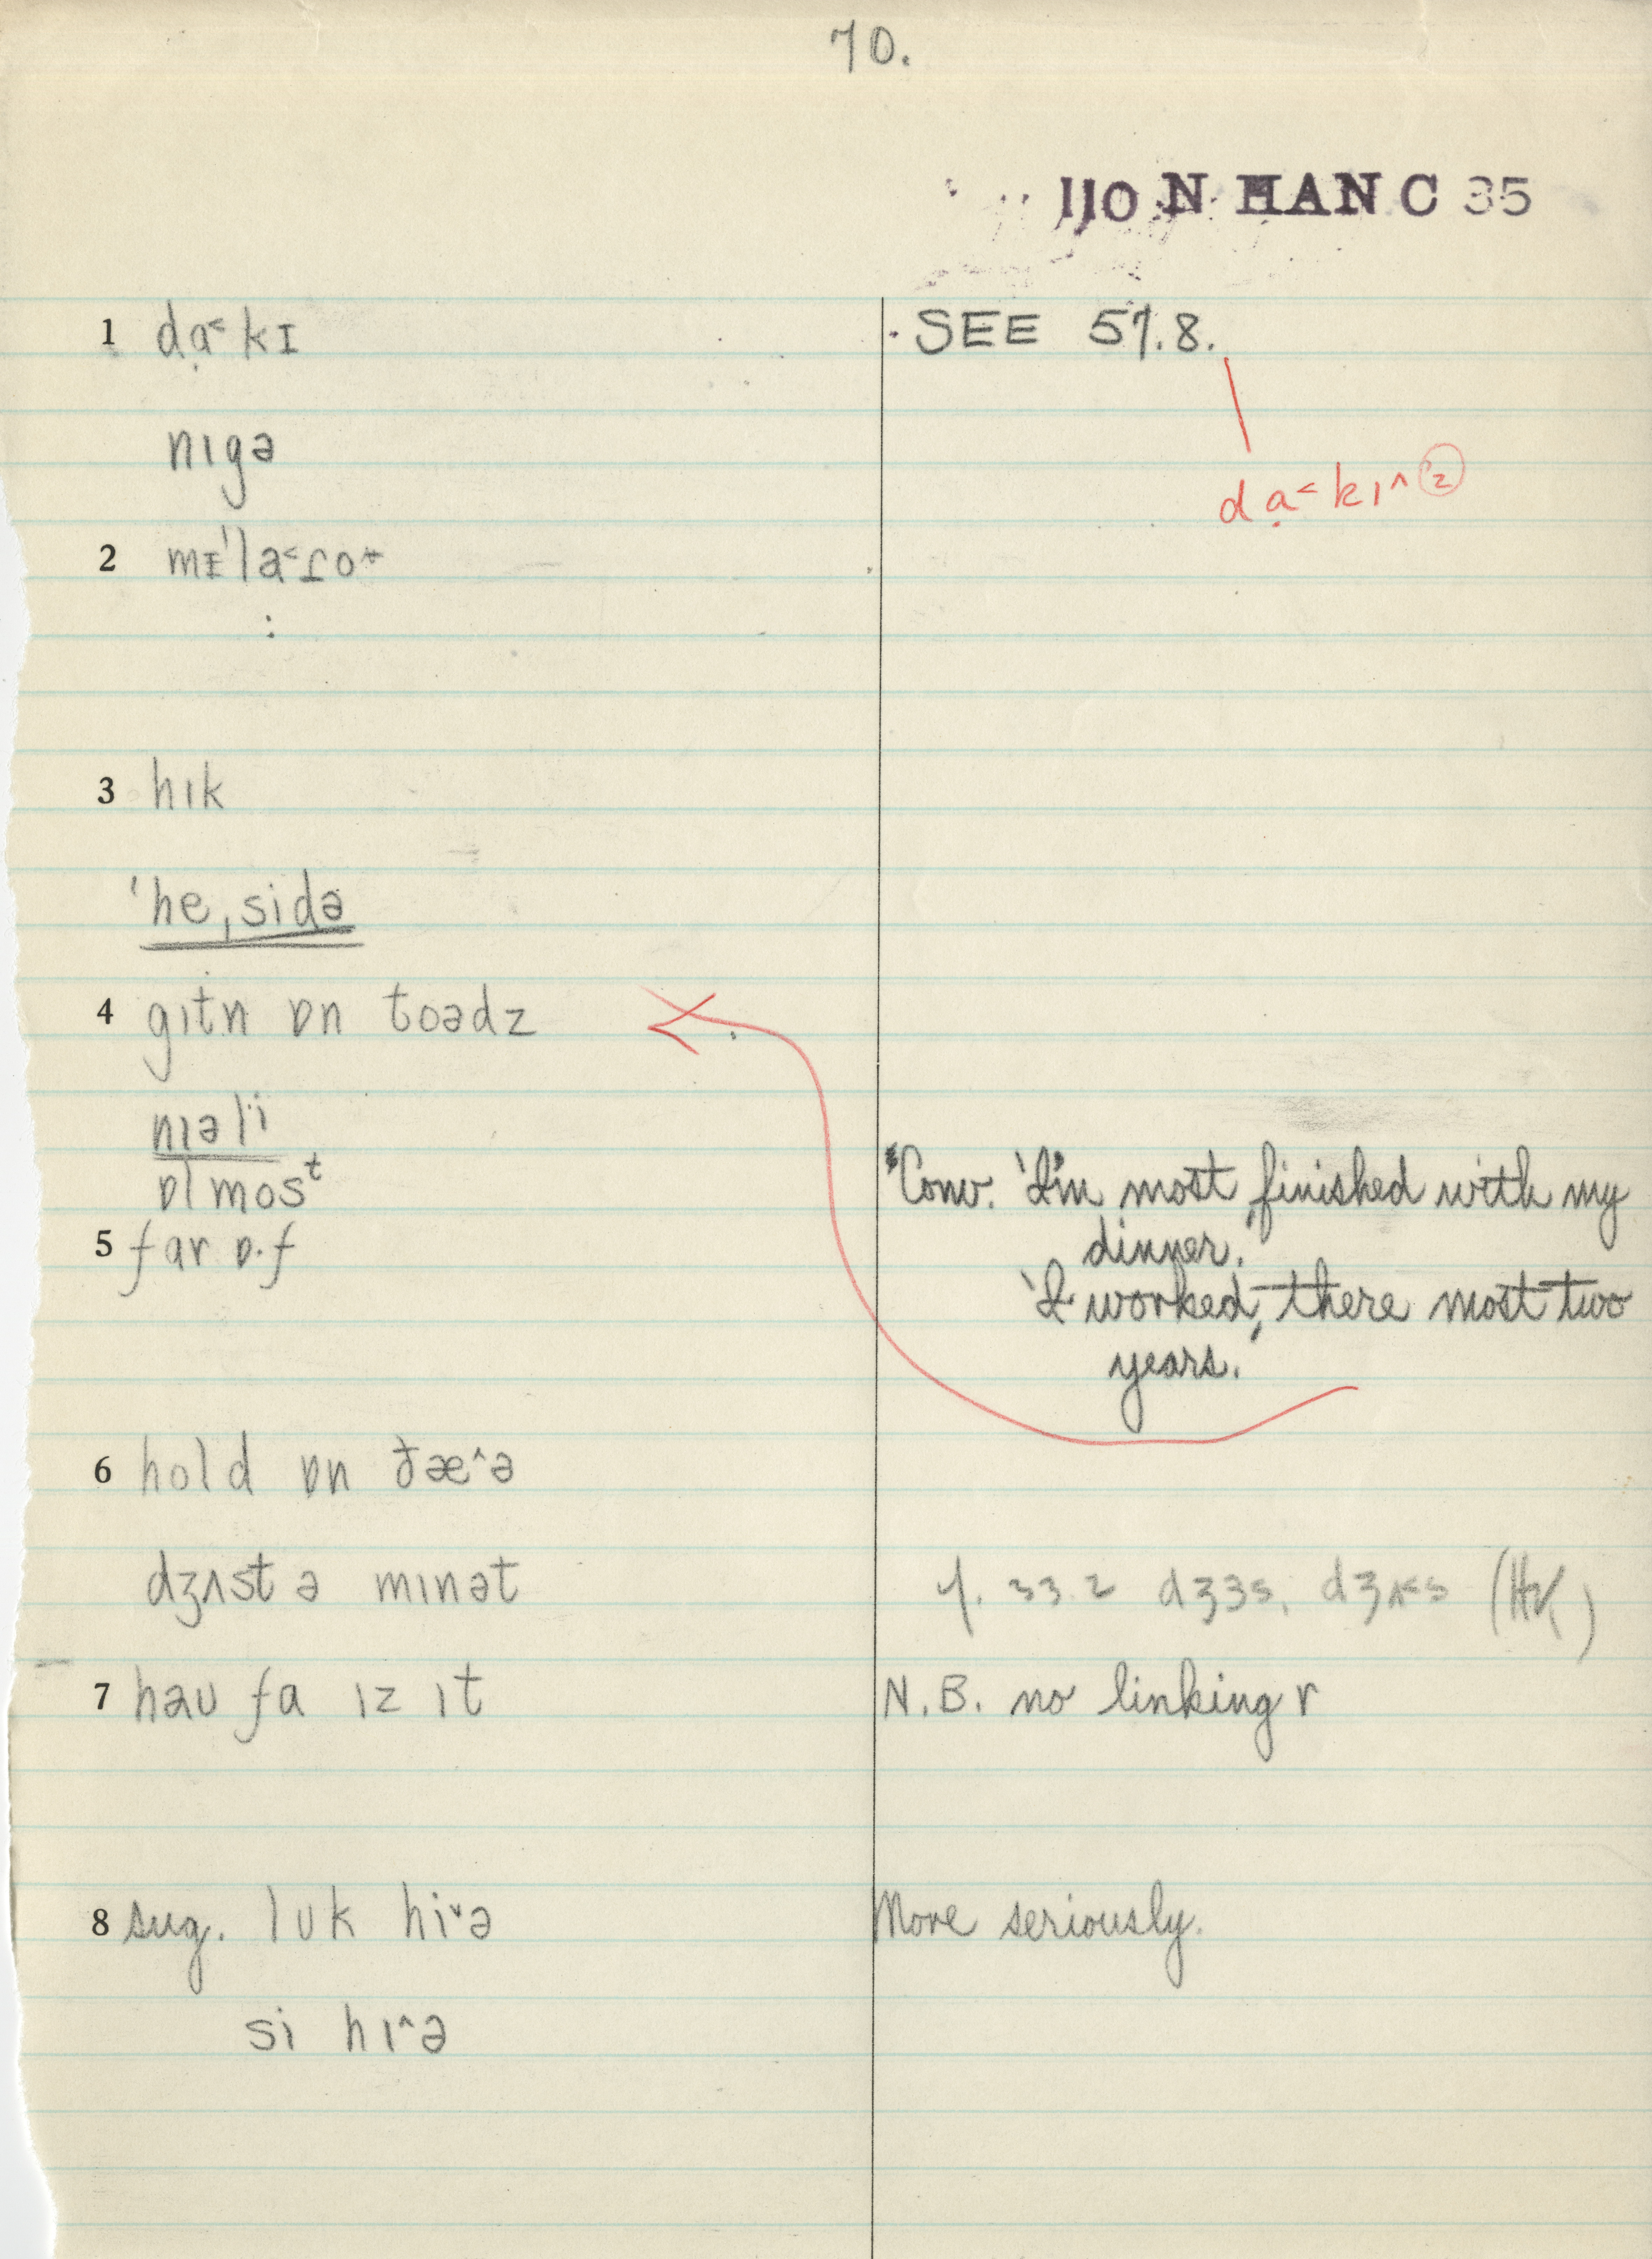 70.
IJO N HAN C 35
1 dạ˂kɪ · SEE 57.8.
nɪgə
dạ˂kɪ˄ ②
2 mɪ'la˂ɾo˖
:
3 hɪk
ˈhe,sidə
4 gɪtn ɒn toədz
nɪəlɪ
ɒlmosᵗ
"Conv. 'I'm most finished with my
5 far ɒ·f dinner.'
'I worked there most two
years.'
6 hold ɒn ðæ˄ə
dʒʌst ə mɪnət 33.2 dʒɜs, dʒʌ˂s
7 hau fa ɪz ɪt N.B. no linking r
8 sug. luk hi˅ə More seriously.
si hɪ˄ə